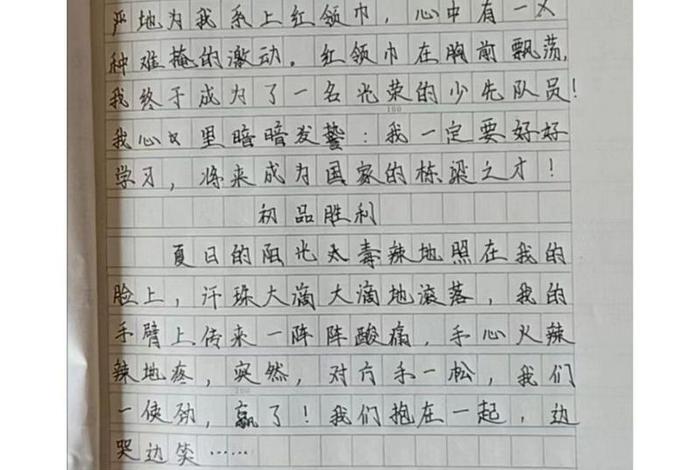 严地为我系上红领巾，心中有一
种难掩的激动。红领巾在胸前飘荡，
我终于成为了一名光荣的少先队员！
100
我心里暗暗发誓：我一定要好好
学习，将来成为国家的栋梁之才！
初品胜利
夏日的阳光太毒辣地照在我的
脸上，汗珠大滴大滴地滚落，我的
手臂上传来一阵阵酸痛，手心火辣
辣地疼，突然，对方手一松，我们
200
一使劲，赢了！我们抱在一起，边
哭边笑……